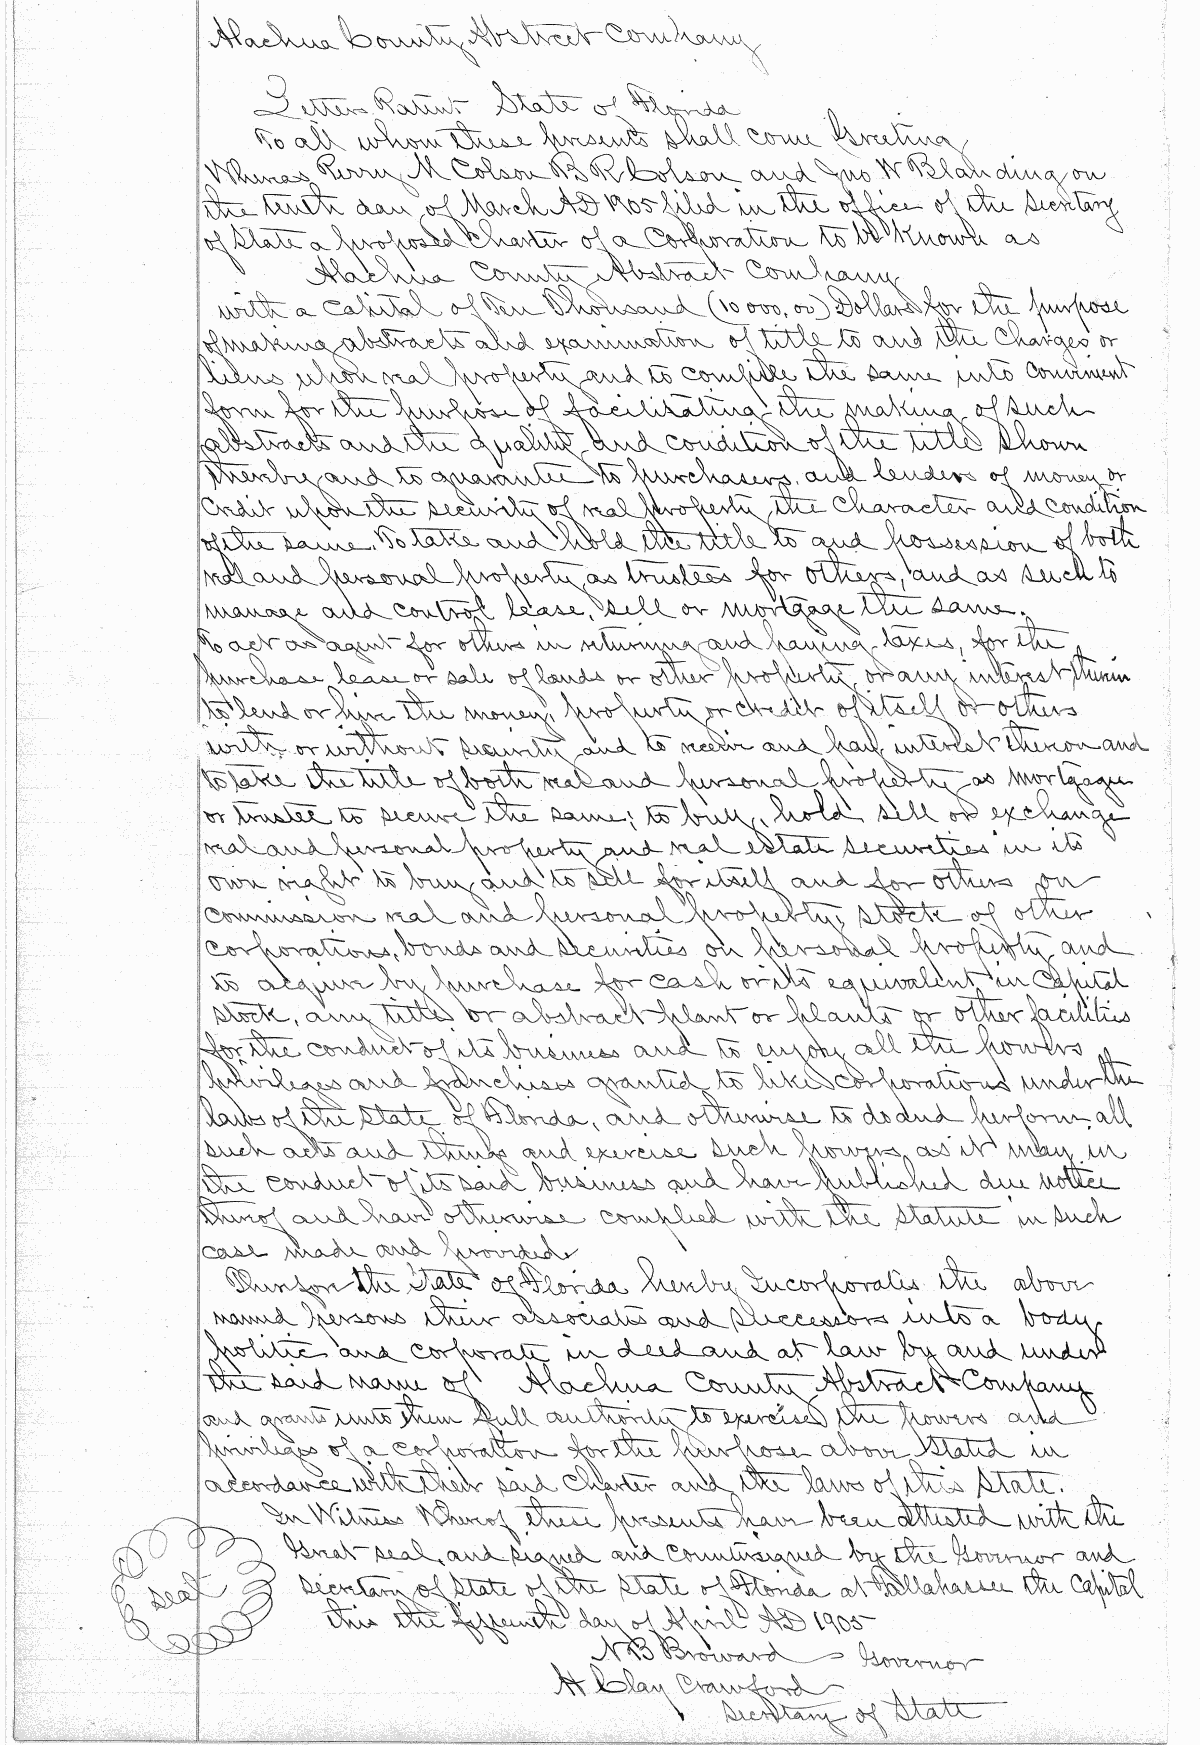 Alachua County Abstract Company
Letters Patent State of Florida
To all whom these presents shall come Greeting
Whereas Perry M Colson B R Colson and Jno W Blanding on
the tenth day of March AD 1905 filed in the office of the Secretary
of State a proposed Charter of a Corporation to be known as
Alachua County Abstract Company
with a capital of Ten Thousand (10000.00) Dollars for the purpose
of making abstracts and examination of title to and the Charges or
liens upon real property and to compile the same into convenient
form for the purpose of facilitating the making of such
abstracts and the quality and condition of the title shown
thereby and to guarantee to purchasers and lenders of money or
Credit upon the security of real property the character and condition
of the same. To take and hold the title to and possession of both
real and personal property as trustees for others, and as such to
manage and control lease, sell or mortgage the same.
To act as agent for others in returning and paying taxes, for the
purchase lease or sale of lands or other property or any interest therein
to lend or hire the money, property or credit of itself or others
with or without security and to receive and pay interest thereon and
to take the title of both real and personal property as mortgagee
or trustee to secure the same; to buy, hold, sell or exchange
real and personal property and real estate securities in its
own right to buy and to sell for itself and for others on
commission real and personal property, stock of other
corporations, bonds and securities on personal property and
to acquire by purchase for cash or its equivalent in Capital
stock, any title or abstract plant or plants or other facilities
for the conduct of its business and to enjoy all the powers
privileges and franchises granted to like corporations under the
laws of the State of Florida, and otherwise to do and perform all
such acts and things and exercise such powers as it may in
the conduct of its said business and have published due notice
thereof and have otherwise complied with the statute in such
case made and provided
Therefore the State of Florida hereby Incorporates the above
named persons their associates and successors into a body
politic and corporate in deed and at law by and under
the said name of Alachua County Abstract Company
and grants unto them full authority to exercise the powers and
privileges of a corporation for the purpose above stated in
accordance with their said Charter and the laws of this State.
In Witness Whereof these presents have been attested with the
Great seal, and signed and countersigned by the Governor and
seal
Secretary of State of the State of Florida at Tallahassee the Capital
this the fifteenth day of April AD 1905
N B Broward Governor
H Clay Crawford
Secretary of State